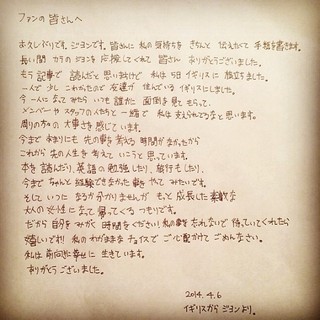 ファンの皆さんへ
お久しぶりです。ジヨンです。皆さんに私の気持ちをきちんと伝えたくて手紙を書きます。
長い間カラのジヨンを応援してくれて皆さんありがとうございました。
もう記事で読んだと思いますけど私は5日イギリスに旅立ちました。
一人で少しこわかったので友達が住んでいるイギリスにしました。
今一人になってみたらいつも誰かに面倒を見てもらって、
メンバーやスタッフの人たちと一緒で私は支えられてるなと思います。
周りの方の大事さを感じています。
今まであまりにも先の事を考える時間がなかったから
これから先の人生を考えていこうと思っています。
本を読んだり、英語の勉強したり、旅行もしたり、
今までちゃんと経験できなかった事をやってみたいです。
そしていつになるか分かりませんがもっと成長した素敵な
大人の女性になって帰ってくるつもりです。
だから自分をみがく時間をください!私の事を忘れないで待っていてくれたら
嬉しいです!!私のわがままなチョイスでご心配かけてごめんなさい。
私は前向きに幸せに生きています。
ありがとうございました。
2014.4.6
イギリスからジヨンより。